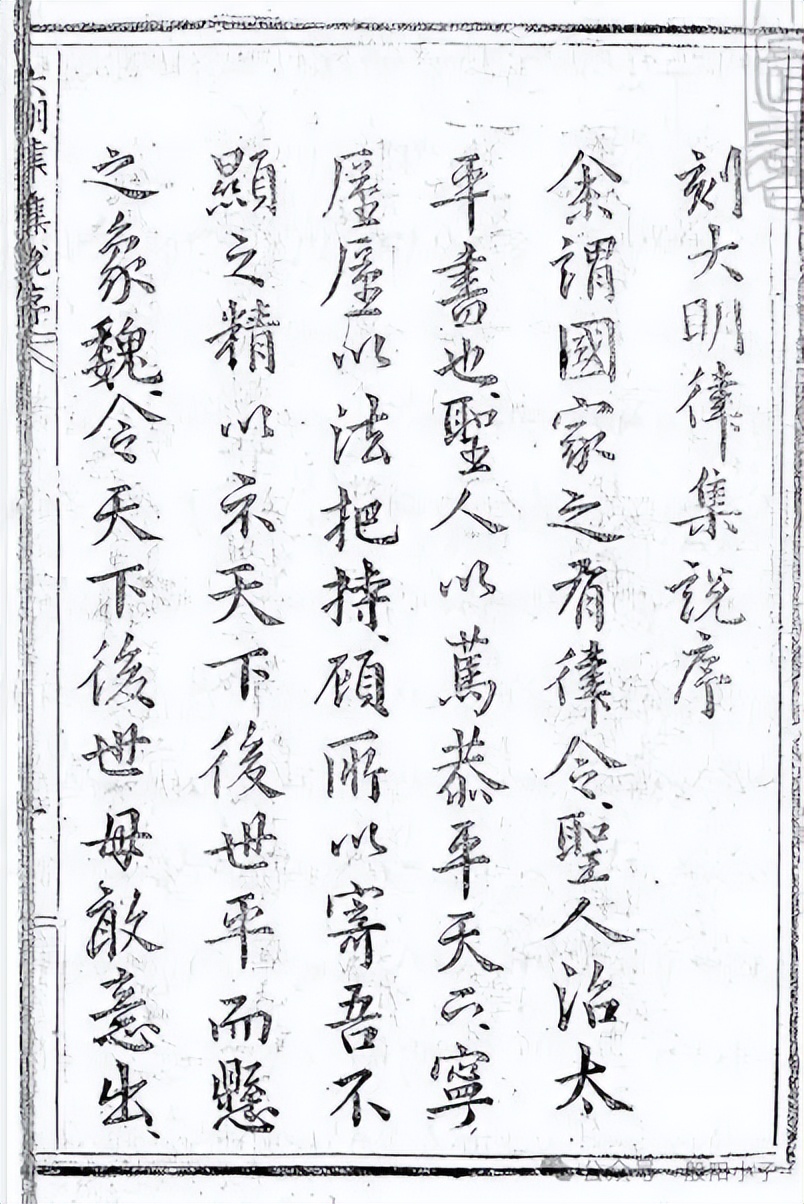 刻大明律集說序
余謂國家之有律令聖人治太
平書也聖人以篤恭平天下寧
屋屋以法把持顧所以寄吾不
顯之精以示天下後世平而懸
之象魏令天下後世毋敢意出
大明律集說序
公众号 般阳小子